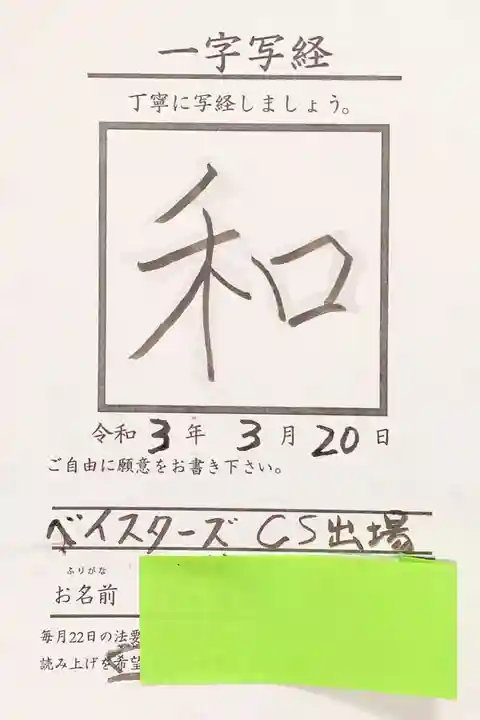 一字写経
丁寧に写経しましょう。
和
令和3年 3月20日
ご自由に願意をお書き下さい。
ベイスターズ CS出場
ふりがな
お名前
毎月22日の法要
読み上げを希望